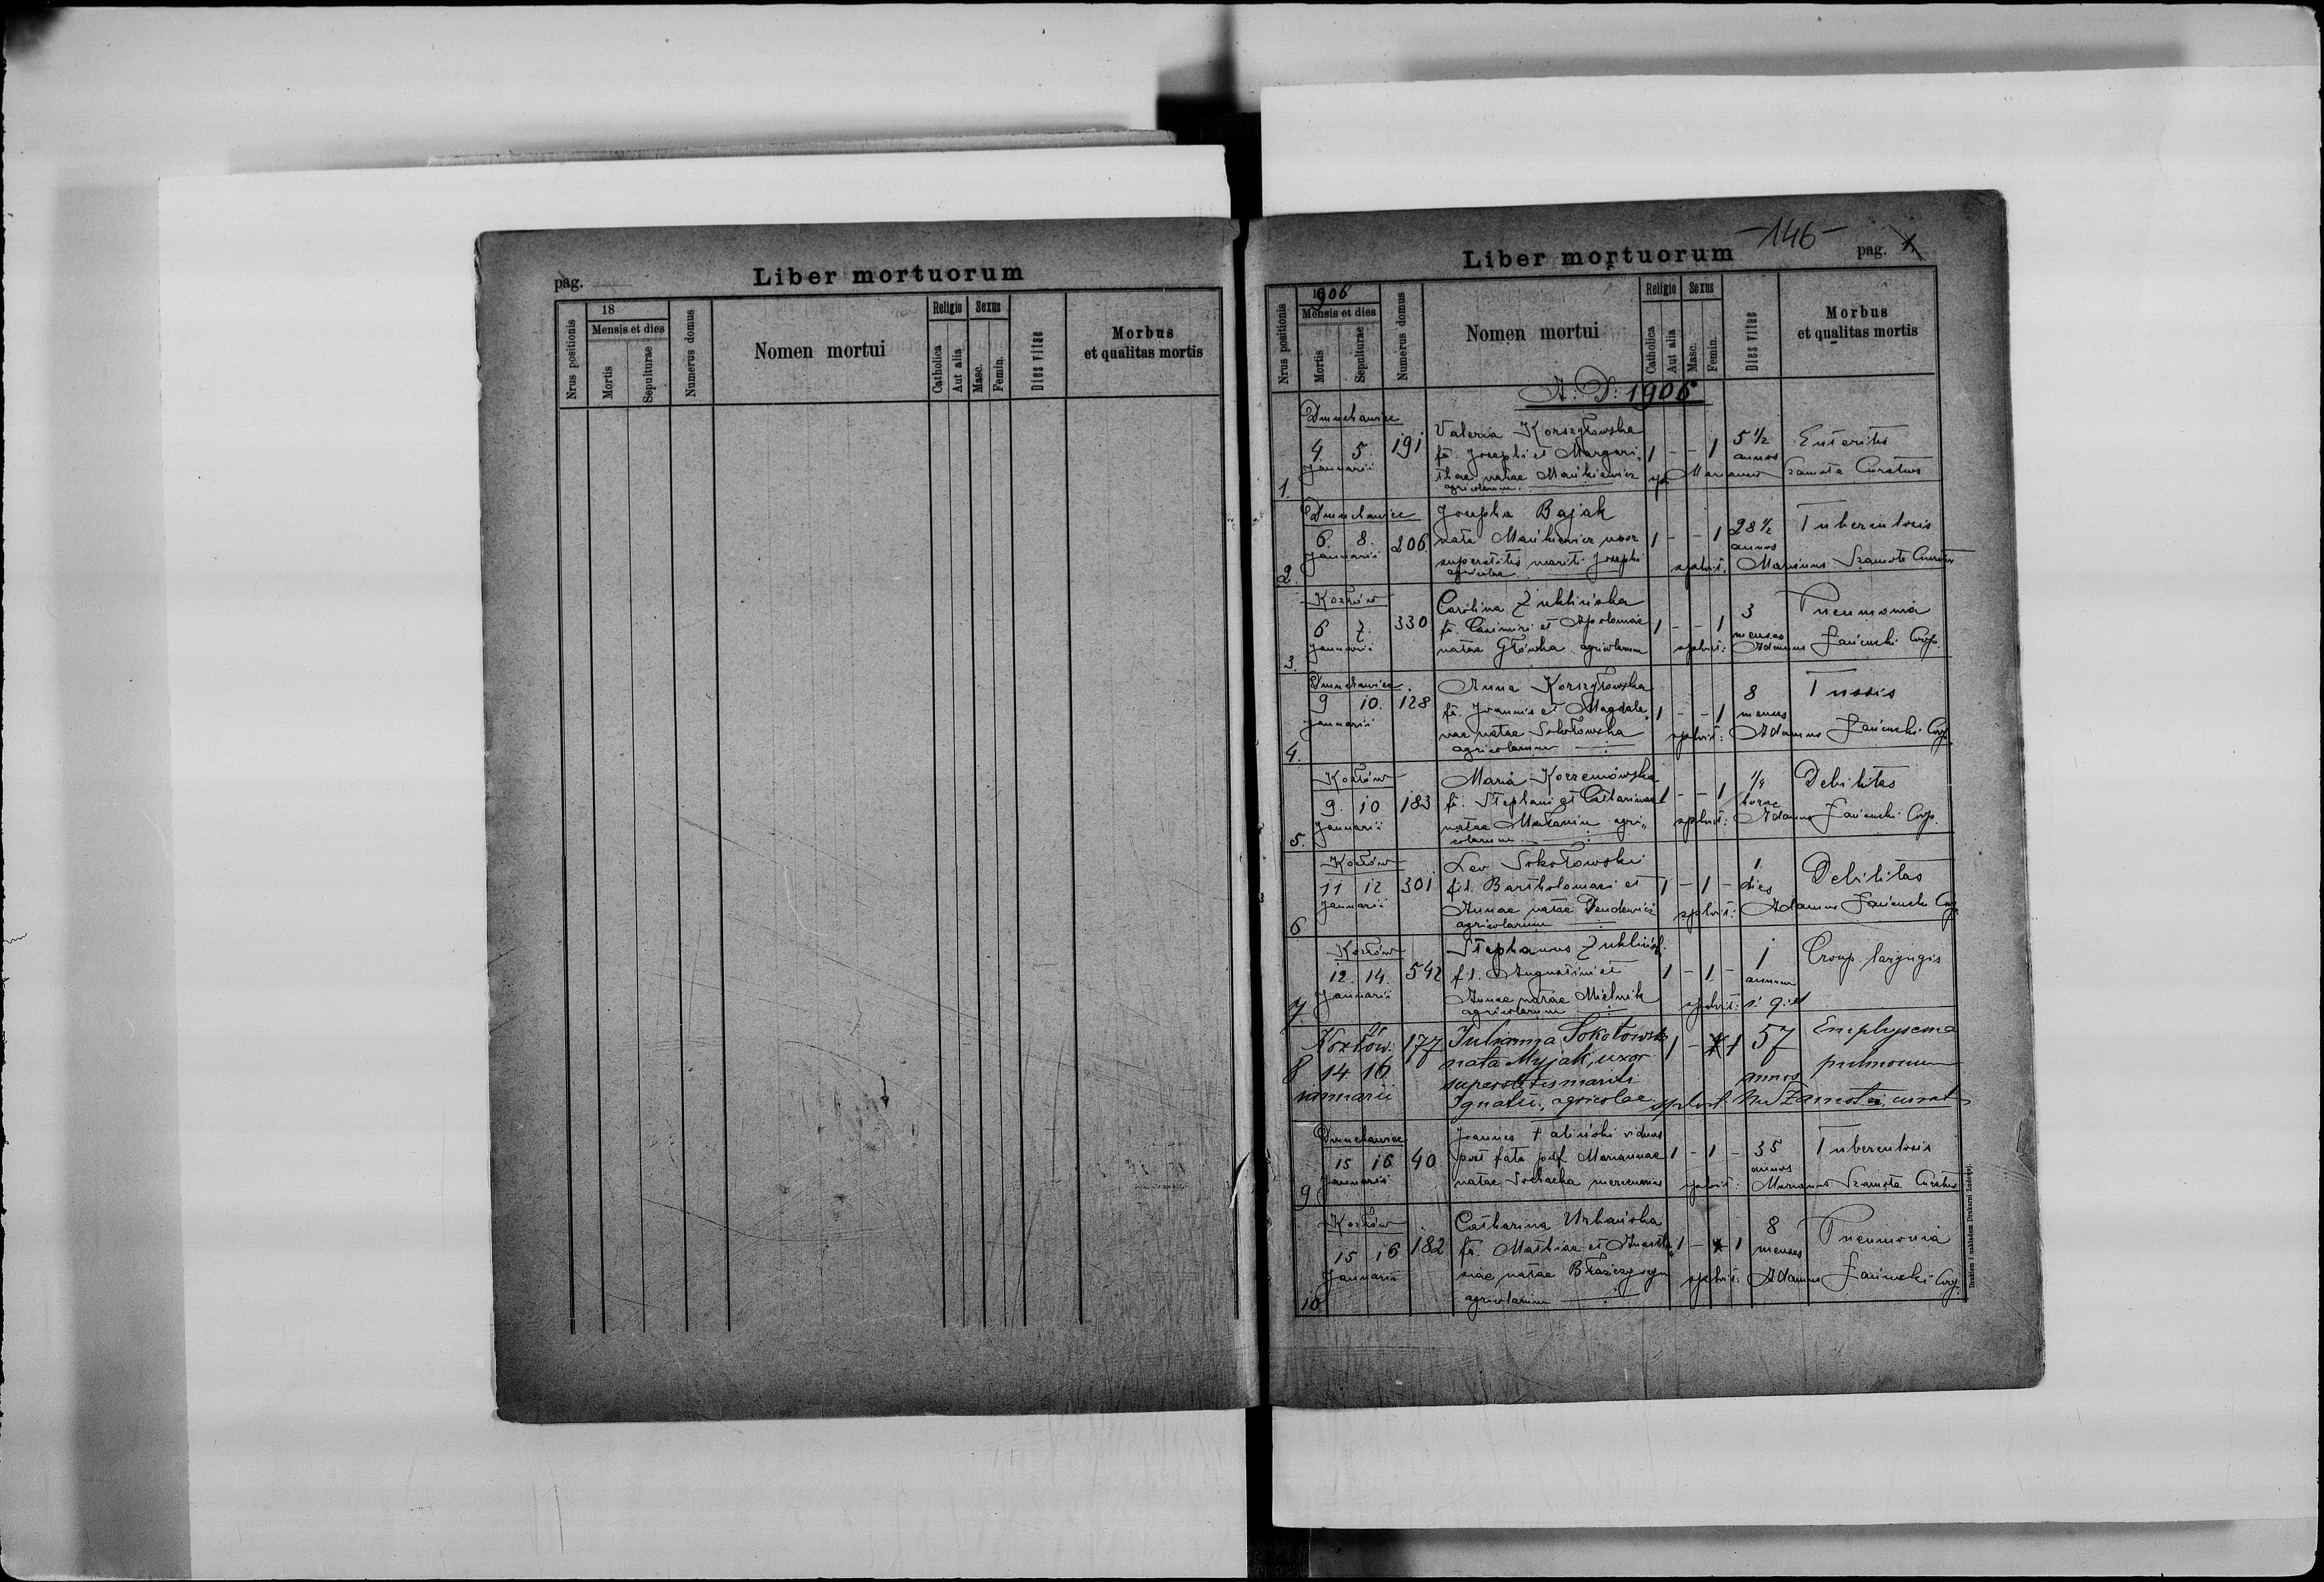 pag.
Liber mortuorum
Nrus positionis
18
Mensis et dies
Mortis
Sepulturae
Numerus domus
Nomen mortui
Religio
Catholica
Aut alia
Sexus
Masc.
Femin.
Dies vitae
Morbus
et qualitas mortis
-146-
Liber mortuorum
pag. 1
Nrus positionis
1906
Mensis et dies
Mortis
Sepulturae
Numerus domus
Nomen mortui
Religio
Catholica
Aut alia
Sexus
Masc.
Femin.
Dies vitae
Morbus
et qualitas mortis
A. D: 1906
Dmuchawiec
Valeria Korszyłowska
4. 5. 191 fa. Josephi et Margari, 1 - - 1 5 1/2 annos Enteritis
Januarii thae natae Mańkiewicz Marianus Szamota Curatus
1. agricolarum
Dmuchawiec Josepha Bajak
6. 8. 206. nata Mańkiewicz uxor 1 - - 1 28 1/2 annos Tuberculosis
Januarii superstitis mariti Josephi splvit: Marianus Szamota Curatus
2. agricolae
Kozłów Carolina Żuklińska
6 7. 330 fa. Casimiri et Apoloniae 1 - - 1 3 menses Pneumonia
Januarii natae Głowka agricolarum splvit: Adamus Coop.
3.
Dmuchawiec Anna Korszyłowska
9 10. 128 fa. Joannis et Magdale, 1 - - 1 8 menses Tussis
Januarii nae natae Sokołowska splvit: Adamus Coop.
4. agricolarum
Kozłów Maria Korzeniowska
9. 10 183 fa. Stephani et Catharinae 1 - - 1 1/4 horae Debilitas
Januarii natae agri„ splvit: Adamus Coop.
5. colarum
Kozłów Leo Sokołowski
11 12 301 fil. Bartholomaei et 1 - 1 - 1 dies Debilitas
Januarii Annae natae splvit: Adamus Coop.
6 agricolarum
Kozłów Stephanus
12. 14. 542 fil. Augustini et 1 - 1 - 1 annum Croup laryngis
Januarii Annae natae Mielnik splvit:
7 agricolarum
Kozłów. 177 Julianna Sokołowska 1 - 1 57 Emphysema
8 14 16 nata Myjak, uxor annos pulmonum
januarii superstitis mariti
Ignatii, agricolae splvit. Szamota, curat
Dmuchawiec Joannes viduus
15 16 40 post fata Mariannae 1 - 1 - 35 annos Tuberculosis
Januarii natae Sochacka splvit: Marianus Szamota Curatus
9
Kozłów Catharina Urbańska
15 16 182 fa. Mathiae et Anasta, 1 - 1 8 menses Pneumonia
Januarii siae natae splvit: Adamus Coop.
10 agricolarum
Drukiem i nakładem Drukarni Ludowej.